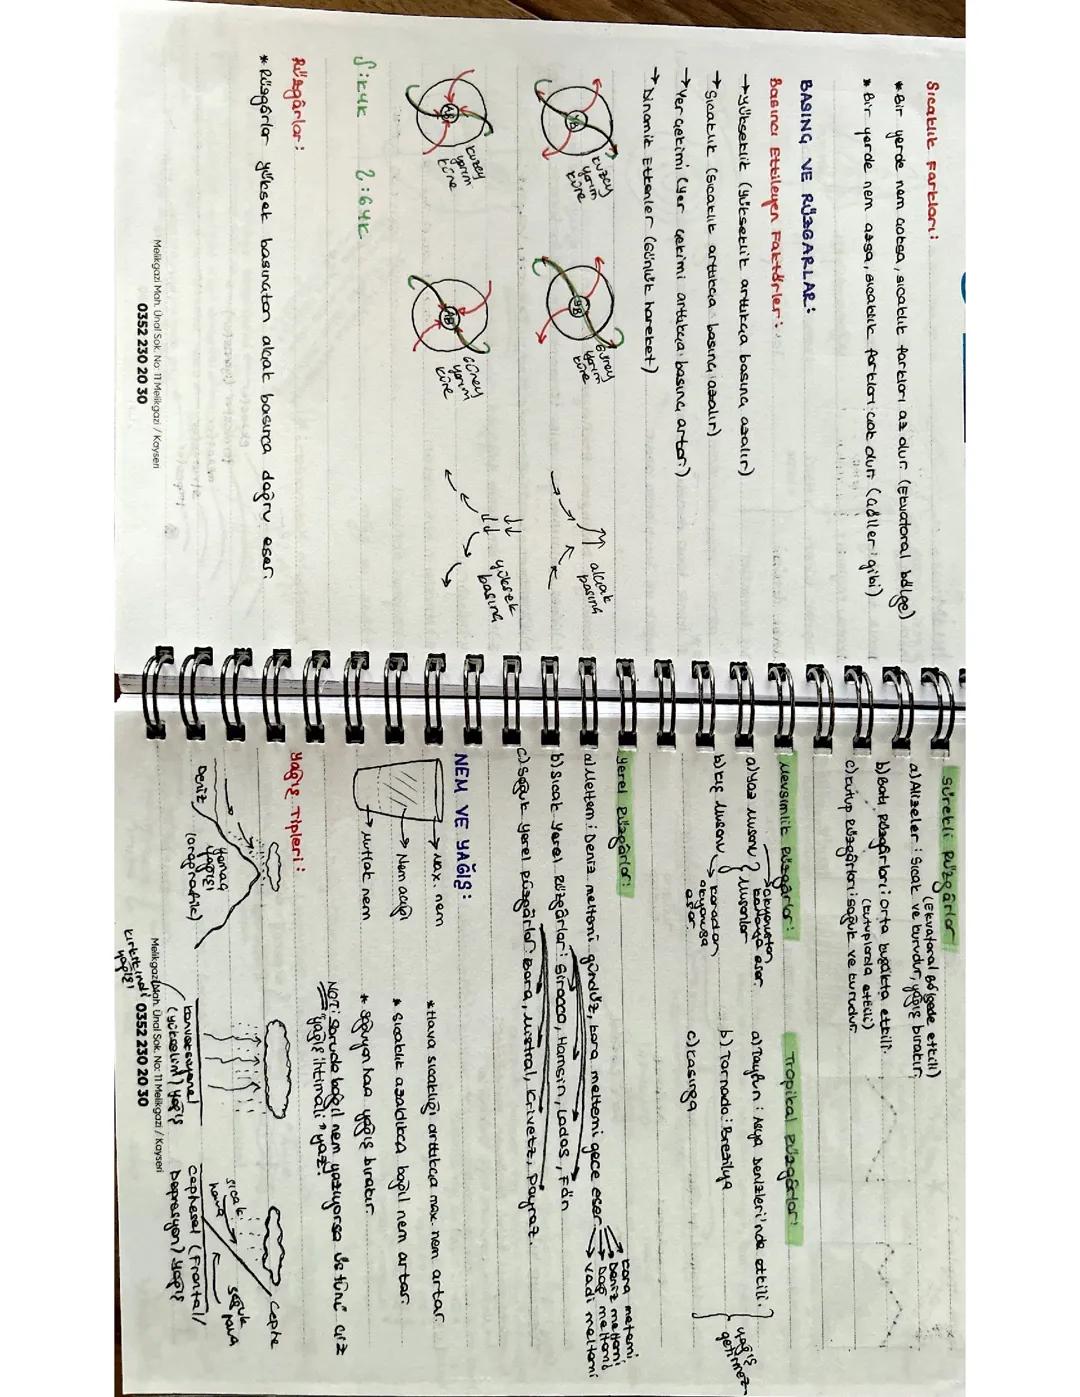 Sıcaklık Farkları:
* Bir yerde nem çoksa, sıcaklık farkları az dur (Ekvatoral bölge)
* Bir yerde nem azsa, sıcaklık farkları çok dur. (çöller gibi)
BASINÇ VE RÜZGARLAR:
Basıncı Etkileyen Faktörler:
→ Yükseklik (yükseklik arttıkça basınç azalır)
→ Sıcaklık (sıcaklık arttıkça basınç azalır)
→ Yer çekimi (yer çekimi arttıkça basınç artar)
→ Dinamik Etkenler (Günlük hareket)
YB
kuzey
yarım
küre
YB
Güney
yarım
küre
alçak
basınç
AB
kuzey
yarım
küre
AB
Güney
yarım
küre
yüksek
basınç
Rüzgârlar:
* Rüzgârlar yüksek basınçtan alçak basınca doğru eser.
Melikgazi Mah. Ünal Sok. No: 11 Melikgazi / Kayseri
0352 230 20 30
Sürekli Rüzgârlar
(Ekvatoral Bölgede etkili)
a) Alizeler: Sıcak ve kurudur, yağış bırakır.
b) Batı Rüzgârları: Orta kuşakta etkili.
(kutuplarda etkili)
c) Kutup Rüzgârları: soğuk ve kurudur.
Mevsimlik Rüzgârlar:
→ okyanustan
karaya eser.
a) Yaz Musonu
b) Kış Musonu
Musonlar
→ karadan
okyanusa
eser.
Tropikal Rüzgârlar:
a) Tayfun: Asya Denizleri'nde etkili.
b) Tornado: Brezilya
c) Kasırga
yağış
getirmez
Yerel Rüzgârlar:
a) Meltem: Deniz meltemi gündüz, kara meltemi gece eser
→ kara meltemi
→ Deniz meltemi
→ Dağ meltemi
→ Vadi meltemi
b) Sıcak Yerel Rüzgârlar: Sirocco, Hamsin, Lodos, Fön
c) Soğuk Yerel Rüzgârlar: Bora, Mistral, Krivetz, Poyraz.
NEM VE YAĞIŞ:
→ Max. nem
→ Nem açığı
→ Mutlak nem
* Hava sıcaklığı arttıkça max. nem artar
* Sıcaklık azaldıkça bağıl nem artar.
* Soğuyan hava yağış bırakır.
NOT: Soruda bağıl nem yazıyorsa üstünü çiz
"yağış ihtimali" yaz!
Yağış Tipleri:
Deniz
Yamaç
yağışı
(orografik)
konveksiyonel
(yükselim) yağış
kırkikindi
yağışı
Cephe
sıcak
hava
soğuk
hava
Cephesel (Frontal/
Depresyon) yağış
Melikgazi Mah. Ünal Sok. No: 11 Melikgazi / Kayseri
0352 230 20 30